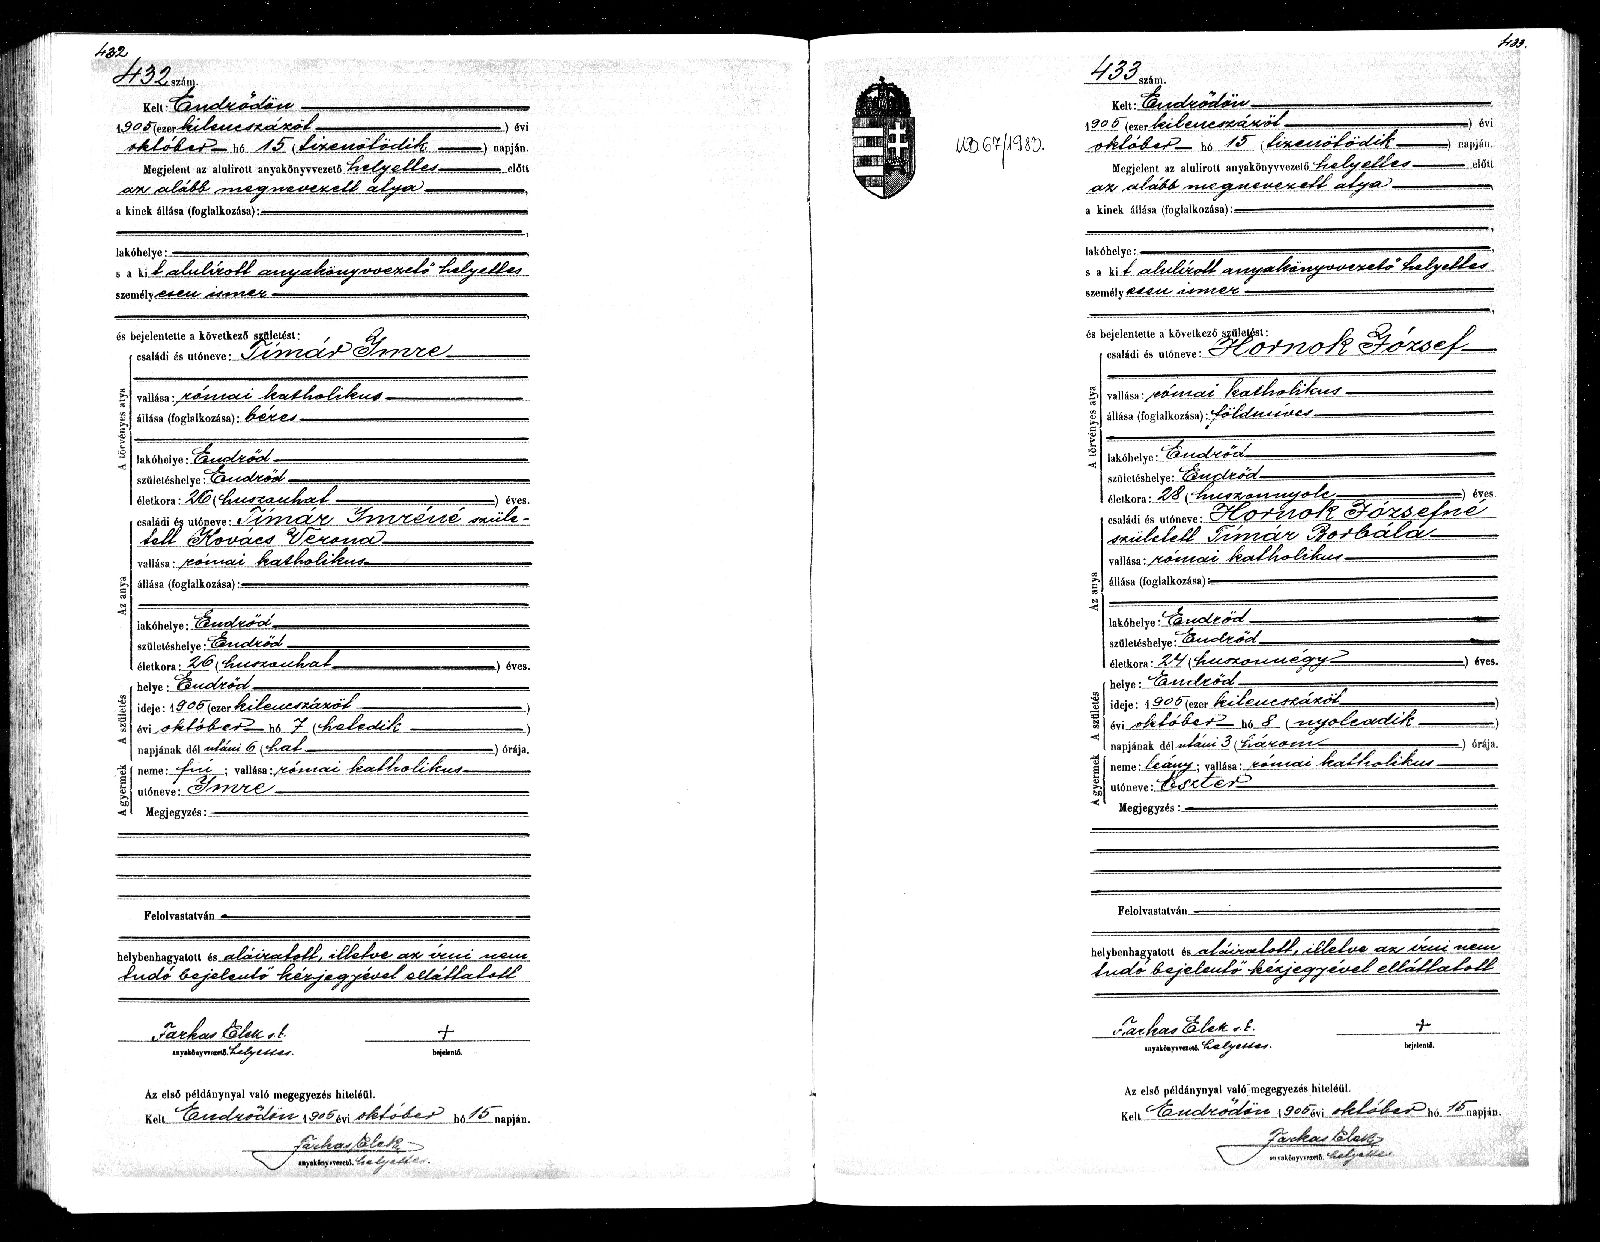 432
432 szám.
Kelt: Endrődön
1905 (ezer kilencszázöt ) évi
október hó 15 (tizenötödik ) napján.
Megjelent az alulirott anyakönyvvezető helyettes előtt
az alább megnevezett atya ,
a kinek állása (foglalkozása):
lakóhelye:
s a kit alulírott anyakönyvvezető helyettes
személyesen ismer
és bejelentette a következő születést:
A törvényes atya
családi és utóneve: Tímár Imre
vallása: római katholikus
állása (foglalkozása): béres
lakóhelye: Endrőd
születéshelye: Endrőd
életkora: 26 (huszonhat ) éves.
Az anya
családi és utóneve: Tímár Imréné szüle-
tett Kovács Verona
vallása: római katholikus
állása (foglalkozása):
lakóhelye: Endrőd
születéshelye: Endrőd
életkora: 26 (huszonhat ) éves.
A születés
helye: Endrőd
ideje: 1905 (ezer kilencszázöt )
évi október hó 7 (hetedik )
napjának dél utáni 6 (hat ) órája.
A gyermek
neme: fiú ; vallása: római katholikus
utóneve: Imre
Megjegyzés:
Felolvastatván
helybenhagyatott és aláiratott, illetve az írni nem
tudó bejelentő kézjegyével elláttatott
Farkas Elek s.k. +
anyakönyvvezető. helyettes. bejelentő.
Az első példánynyal való megegyezés hiteléül.
Kelt Endrődön 1905 évi október hó 15 napján.
Farkas Elek
anyakönyvvezető. helyettes.
433.
67/1983.
433 szám.
Kelt: Endrődön
1905 (ezer kilencszázöt ) évi
október hó 15 (tizenötödik ) napján.
Megjelent az alulirott anyakönyvvezető helyettes előtt
az alább megnevezett atya ,
a kinek állása (foglalkozása):
lakóhelye:
s a kit alulírott anyakönyvvezető helyettes
személyesen ismer
és bejelentette a következő születést:
A törvényes atya
családi és utóneve: Hornok József
vallása: római katholikus
állása (foglalkozása): földmíves
lakóhelye: Endrőd
születéshelye: Endrőd
életkora: 28 (huszonnyolc ) éves.
Az anya
családi és utóneve: Hornok Józsefné
született Tímár Borbála
vallása: római katholikus
állása (foglalkozása):
lakóhelye: Endrőd
születéshelye: Endrőd
életkora: 24 (huszonnégy ) éves.
A születés
helye: Endrőd
ideje: 1905 (ezer kilencszázöt )
évi október hó 8 (nyolcadik )
napjának dél utáni 3 (három ) órája.
A gyermek
neme: leány ; vallása: római katholikus
utóneve: Eszter
Megjegyzés:
Felolvastatván
helybenhagyatott és aláiratott, illetve az írni nem
tudó bejelentő kézjegyével elláttatott
Farkas Elek s.k. +
anyakönyvvezető. helyettes. bejelentő.
Az első példánynyal való megegyezés hiteléül.
Kelt Endrődön 1905 évi október hó 15 napján.
Farkas Elek
anyakönyvvezető. helyettes